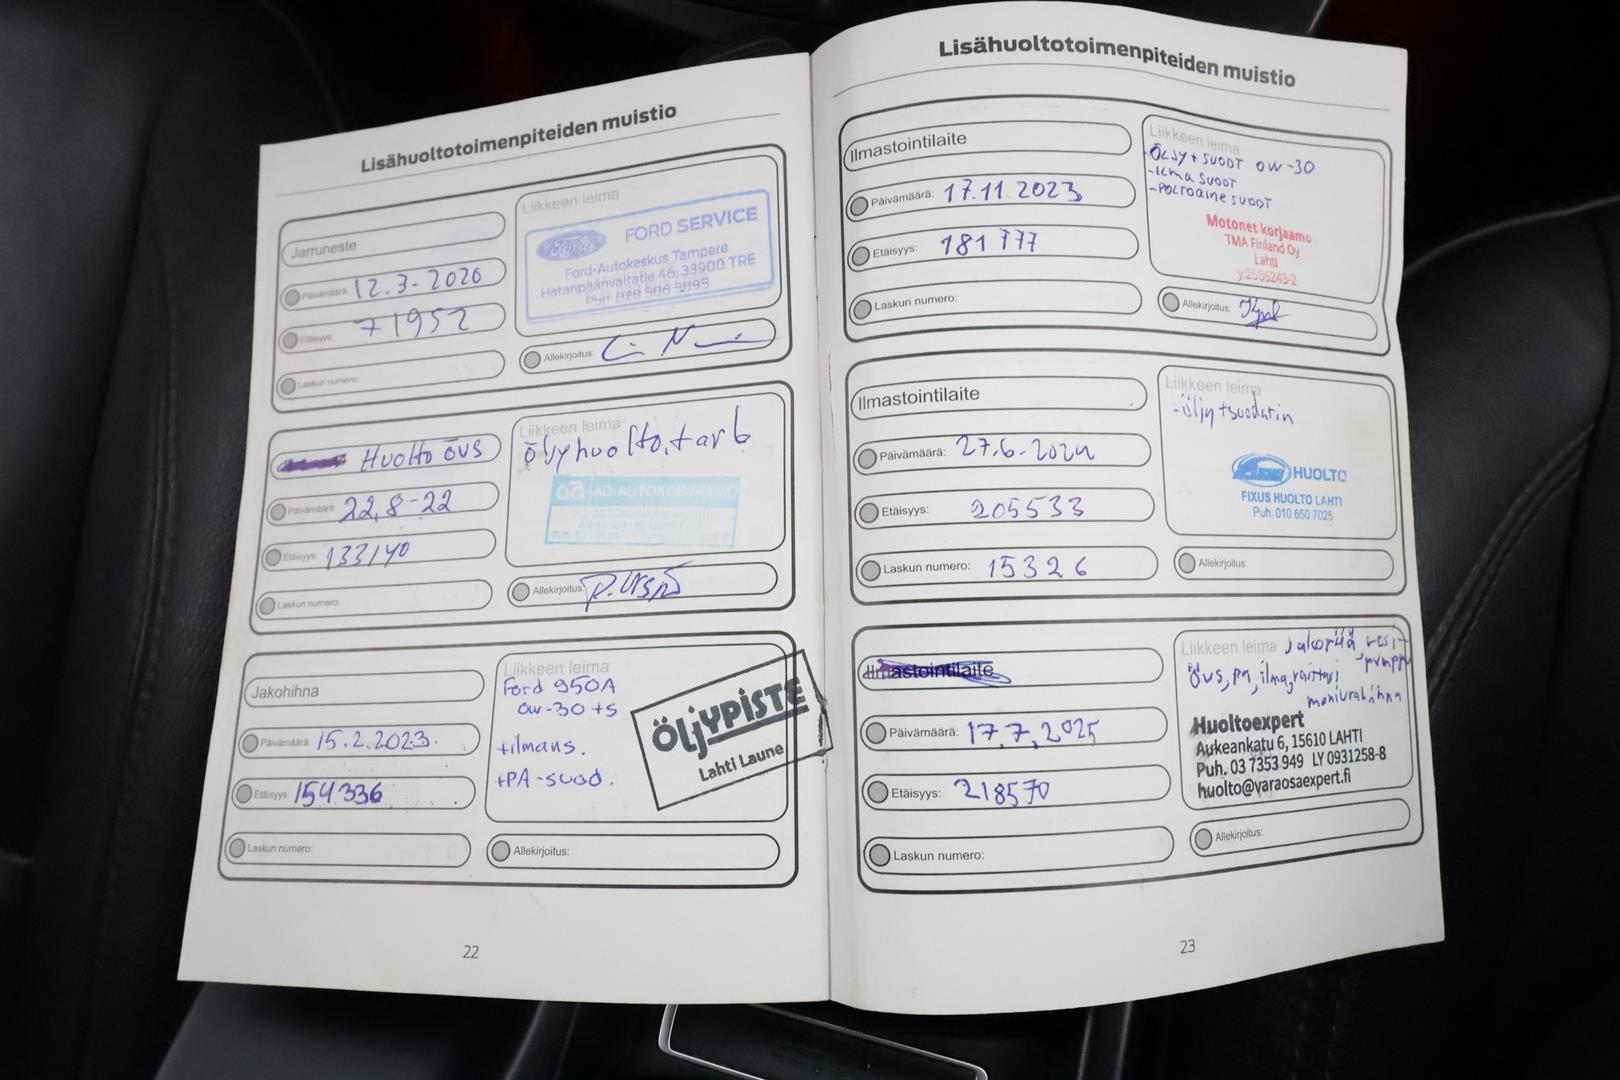 Lisähuoltotoimenpiteiden muistio
Jarruneste
Päivämäärä: 12.3-2020
Etäisyys: 71952
Laskun numero:
Liikkeen leima
Ford
FORD SERVICE
Ford-Autokeskus Tampere
Hatanpäänvaltatie 46, 33900 TRE
Allekirjoitus:
Huolto övs
Päivämäärä: 22,8-22
Etäisyys: 133140
Laskun numero:
Liikkeen leima
öljyhuolto, tarb
ad AD-AUTOKORJAAMO
Allekirjoitus:
Jakohihna
Päivämäärä: 15.2.2023.
Etäisyys: 154.336
Laskun numero:
Liikkeen leima
Ford 950A
0w-30 +s
+ilmans.
+PA-suod.
ÖLJYPISTE
Lahti Laune
Allekirjoitus:
22
Lisähuoltotoimenpiteiden muistio
Ilmastointilaite
Päivämäärä: 17.11.2023
Etäisyys: 181 777
Laskun numero:
Liikkeen leima
-ÖLJY+SUODT 0W-30
-ILMASUODT
-POLTOAINESUODT
Motonet korjaamo
TMA Finland Oy
Lahti
y:2586243-2
Allekirjoitus:
Ilmastointilaite
Päivämäärä: 27.6-2024
Etäisyys: 205533
Laskun numero: 15326
Liikkeen leima
-öljy+suodatin
HUOLTO
FIXUS HUOLTO LAHTI
Puh. 010 650 7025
Allekirjoitus:
Ilmastointilaite
Päivämäärä: 17,7,2025
Etäisyys: 218570
Laskun numero:
Liikkeen leima Jakopää vesi-
pumppu
övs, pa, ilma, raitisi
moniurahihna
Huoltoexpert
Aukeankatu 6, 15610 LAHTI
Puh. 03 7353 949 LY 0931258-8
huolto@varaosaexpert.fi
Allekirjoitus:
23